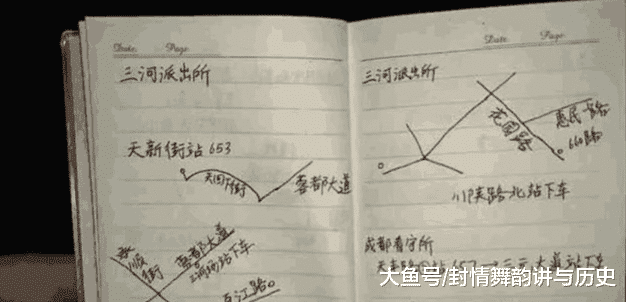 Date Page
三河派出所
天新街站 653
天回下街
蓉都大道
泰顺街
蓉都大道
三河场站下车
Date Page
三河派出所
花园路
惠民
660路
川陕路北站下车
成都看守所
大道站下车
大鱼号/封情舞韵讲与历史